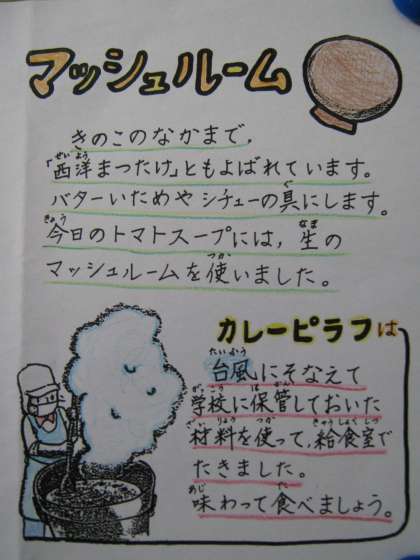 マッシュルーム
きのこのなかまで、
「西洋まつたけ」ともよばれています。
バターいためや シチューの具にします。
今日のトマトスープには、生の
マッシュルームを使いました。
カレーピラフは
台風にそなえて
学校に保管しておいた
材料を使って、給食室で
たきました。
味わって食べましょう。